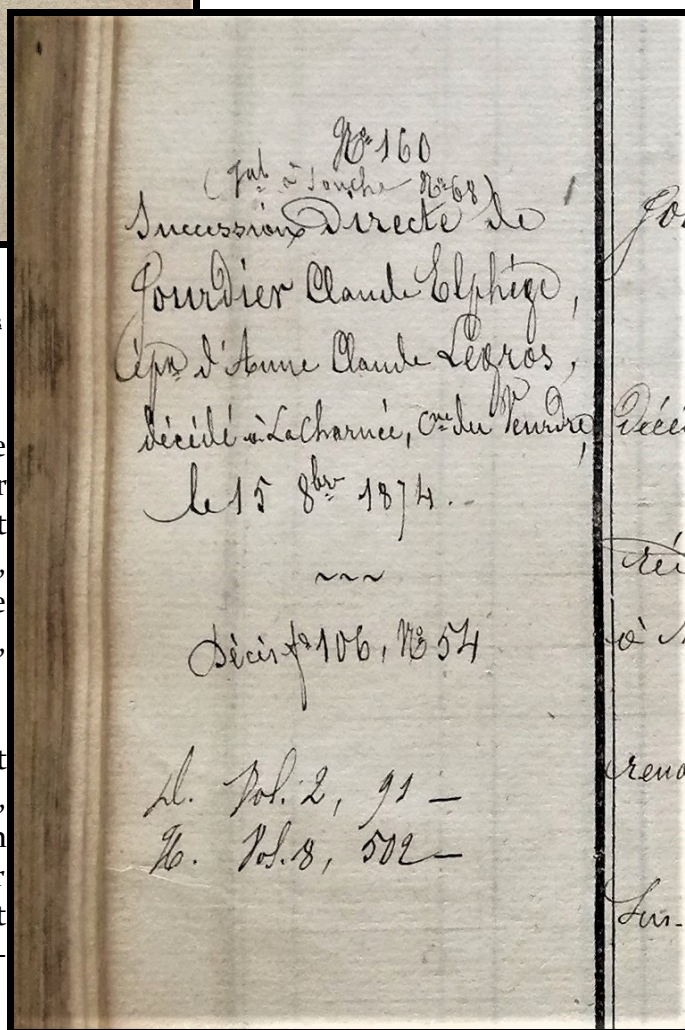 N° 160
(Jal à Souche N° 68)
Succession Directe de
Jourdier Claude Elphège,
Epx d'Anne Claude Legros,
décédé à La Charnée, Cne du Veurdre,
le 15 8bre 1874.
~~~
Décès f° 106, N° 54
D. Vol. 2, 91 —
H. Vol. 8, 502 —